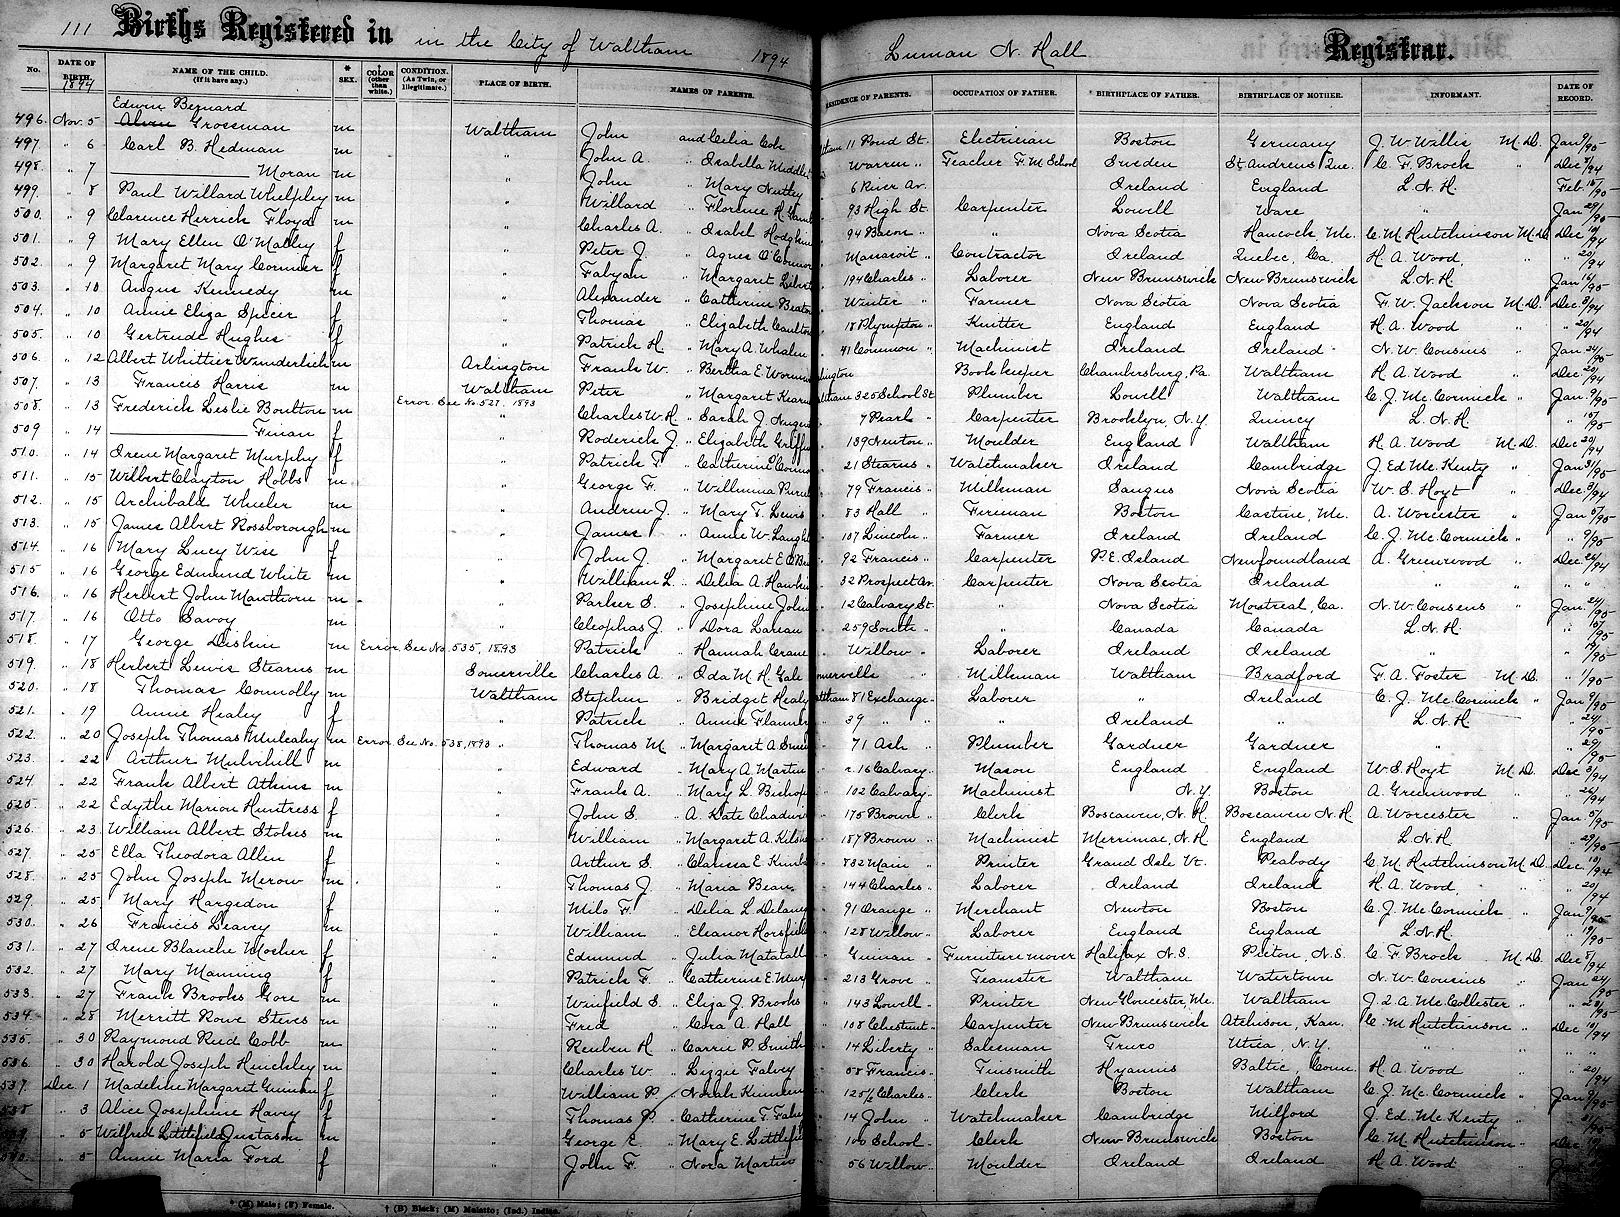 111 Births Registered in in the City of Waltham 1894 Luman N. Hall Registrar.
No. DATE OF BIRTH. 1894 NAME OF THE CHILD. (If it have any.) * SEX. † COLOR (other than white.) CONDITION. (As Twin, or Illegitimate.) PLACE OF BIRTH. NAMES OF PARENTS. RESIDENCE OF PARENTS. OCCUPATION OF FATHER. BIRTHPLACE OF FATHER. BIRTHPLACE OF MOTHER. INFORMANT. DATE OF RECORD.
Edwin Bernard
496. Nov. 5 Grossman m Waltham John and Celia Coh 11 Pond St. Electrician Boston Germany J. W. Willis M.D. Jan 9/95
497. " 6 Carl B. Hedman m " John A. " Isabella Middlet Warren " Teacher F. M School Sweden St. Andrews Que. C. F. Brock " Dec 8/94
498. " 7 Moran m " John " Mary Nutley 6 River Av. Ireland England L. N. H. Feb. 15/95
499. " 8 Paul Willard Whelpley m " Willard " Florence H. 93 High St. Carpenter Lowell Ware " Jan 29/95
500. " 9 Clarence Herrick Floyd m " Charles A. " Isabel Hodgkin 94 Bacon " " Nova Scotia Hancock, Me. C. M Hutchinson M.D. Dec 10/94
501. " 9 Mary Ellen O'Malley f " Peter J. " Agnes O'Connor " Contractor Ireland Quebec, Ca. H. A. Wood, " " 20/94
502. " 9 Margaret Mary Cormier f " Fabyan " Margaret Libert 194 Charles " Laborer New Brunswick New Brunswick L. N. H. Jan 16/95
503. " 10 Angus Kennedy m " Alexander " Catherine Beaton Winter " Farmer Nova Scotia Nova Scotia F. W. Jackson M.D. Dec. 8/94
504. " 10 Annie Eliza Spicer f " Thomas " Elizabeth Caulton 18 Plympton " Knitter England England H. A. Wood " " 20/94
505. " 10 Gertrude Hughes f " Patrick H. " Mary A. Whalen 41 Common " Machinist Ireland Ireland N. W. Cousins " Jan 24/95
506. " 12 Albert Whittier Wunderlich m Arlington Frank W. " Bertha E. Worm lington Bookkeeper Chambersburg, Pa. Waltham H. A. Wood " Dec 20/94
507. " 13 Francis Harris m Waltham Peter " Margaret Kearn ltham 325 School St Plumber Lowell Waltham C. J. Mc.Cormick " Jan. 9/95
508. " 13 Frederick Leslie Boulton m Error. See No. 527. 1893 " Charles W. H. " Sarah J. Nugen 7 Pearl " Carpenter Brooklyn, N.Y. Quincy L. N. H. " 15/95
509 " 14 Finan f " Roderick J. " Elizabeth Griffi 139 Newton " Moulder England Waltham H. A. Wood M.D. Dec 20/94
510. " 14 Irene Margaret Murphy f " Patrick F. " Catherine O'Conn 21 Stearns " Watchmaker Ireland Cambridge J. Ed Mc. Kenty " Jan 31/95
511. " 15 Wilbert Clayton Hobbs m " George F. " Willmina 79 Francis " Milkman Saugus Nova Scotia W. S. Hoyt " Dec 3/94
512. " 15 Archibald Wheeler m " Andrew J. " Mary T. Lewis 83 Hall " Fireman Boston Castine, Me. A. Worcester " Jan 5/95
513. " 15 James Albert Rossborough m " James " Annie W. Laugh 107 Lincoln " Farmer Ireland Ireland C. J. Mc.Cormick " " 9/95
514. " 16 Mary Lucy Wise f " John J. " Margaret E. O'B 92 Francis " Carpenter P.E. Island Newfoundland A. Greenwood " Dec. 24/94
515 " 16 George Edmund White m " William L. " Delia A. Hawkin 32 Prospect Av. Carpenter Nova Scotia Ireland " " "
516. " 16 Herbert John Manthorn m " Parker S. " Josephine Jolin 12 Calvary St. " Nova Scotia Montreal, Ca. N. W. Cousens " Jan. 24/95
517. " 16 Otto Savoy m " Cleophas J. " Dora 259 South " " Canada Canada L. N. H. " 15/95
518. " 17 George Diskin m Error. See No. 535, 1893 " Patrick " Hannah Crane Willow " Laborer Ireland Ireland " "
519. " 18 Herbert Lewis Stearns m Somerville Charles A. " Ida M. H. Gale omerville " Milkman Waltham Bradford F. A. Foster M.D. " 1/95
520. " 18 Thomas Connolly m Waltham Stephen " Bridget Healy altham 81 Exchange " Laborer " Ireland C. J. Mc.Cormick " Jan 9/95
521. " 19 Annie Healey f " Patrick " Annie Flannery 39 " " " Ireland " L. N. H. " 24/95
522. " 20 Joseph Thomas Mulcahy m Error. See No. 538, 1893 " Thomas M " Margaret A. 71 Ash " Plumber Gardner Gardner " " 29/95
523. " 22 Arthur Mulvihill m " Edward " Mary A. Martin r. 16 Calvary " Mason England England W. S. Hoyt M.D. Dec 3/94
524. " 22 Frank Albert Atkins m " Frank A. " Mary L. Bishop 102 Calvary " Machinist N.Y. Boston A. Greenwood " " 26/94
525. " 22 Edythe Marion Huntress f " John S. " A. Kate Chadwi 175 Brown " Clerk Boscawen, N. H. Boscawen N. H. A. Worcester " Jan 5/95
526. " 23 William Albert Stokes m " William " Margaret A. 187 Brown " Machinist Merrimac, N.H. England L. N. H. " 29/95
527. " 25 Ella Theodora Allen f " Arthur S. " Clarissa E Kimb 832 Main " Printer Grand Isle Vt. Peabody C. M Hutchinson M.D. Dec 10/94
528. " 25 John Joseph Merow m " Thomas J. " Maria Bean 144 Charles " Laborer Ireland Ireland H. A. Wood, " " 20/94
529. " 25 Mary Hargedon f " Milo F. " Delia L. Delaney 91 Orange " Merchant Newton Boston C. J. Mc.Cormick " Jan 9/95
530. " 26 Francis Leavy m " William " Eleanor Horsfield 128 Willow " Laborer England England L. N. H. " 19/95
531. " 27 Irene Blanche Mosher f " Edmund " Julia Matatall Guinan " Furniture mover Halifax N.S. Pictou, N.S. C. F. Brock M.D. Dec 8/94
532. " 27 Mary Manning f " Patrick F. " Catherine E. Mur 213 Grove " Teamster Waltham Watertown N. W. Cousins " Jan 24/95
533. " 27 Frank Brooks Gore m " Winfield S. " Eliza J. Brooks 143 Lowell " Printer New Gloucester, Me. Waltham J. Q A. Mc.Collester " " 28/95
534. " 28 Merritt Rowe Steves m " Fred " Cora A Hall 108 Chestnut " Carpenter New Brunswick Atchison, Kan. C. M Hutchinson " Dec 10/94
535. " 30 Raymond Reed Cobb m " Reuben H " Carrie P. Smith 14 Liberty " Salesman Truro Utica, N.Y. " " "
536. " 30 Harold Joseph Hinckley m " Charles W. " Lizzie Falvey 58 Francis " Tinsmith Hyannis Baltic, Conn. H. A. Wood " " 20/94
537. Dec. 1 Madeline Margaret Guinan f " William P. " Norah 125 1/2 Charles " Clerk Boston Waltham C. J. Mc.Cormick " Jan 9/95
538 " 3 Alice Josephine Havey f " Thomas P. " Catherine T. Fahe 14 John " Watchmaker Cambridge Milford J. Ed. Mc.Kenty " " 31/95
539. " 5 Wilfred Littlefield Justason m " George E. " Mary E. Littlefie 100 School " Clerk New Brunswick Boston C. M Hutchinson " Dec 10/94
540. " 5 Annie Maria Ford f " John F. " Nora Martin 56 Willow " Moulder Ireland Ireland H. A. Wood "
* (M) Male; (F) Female. † (B) Black; (M) Mulatto; (Ind.) Indian.